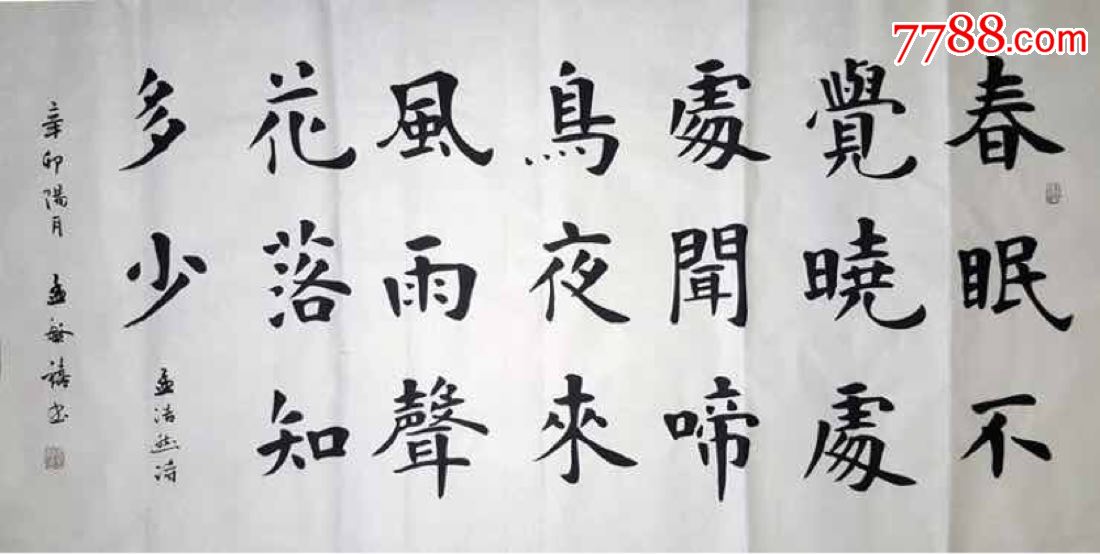 春眠不
覺曉處
處聞啼
鳥夜來
風雨聲
花落知
多少
孟浩然诗
辛卯陽月 孟敏禧书
7788.com